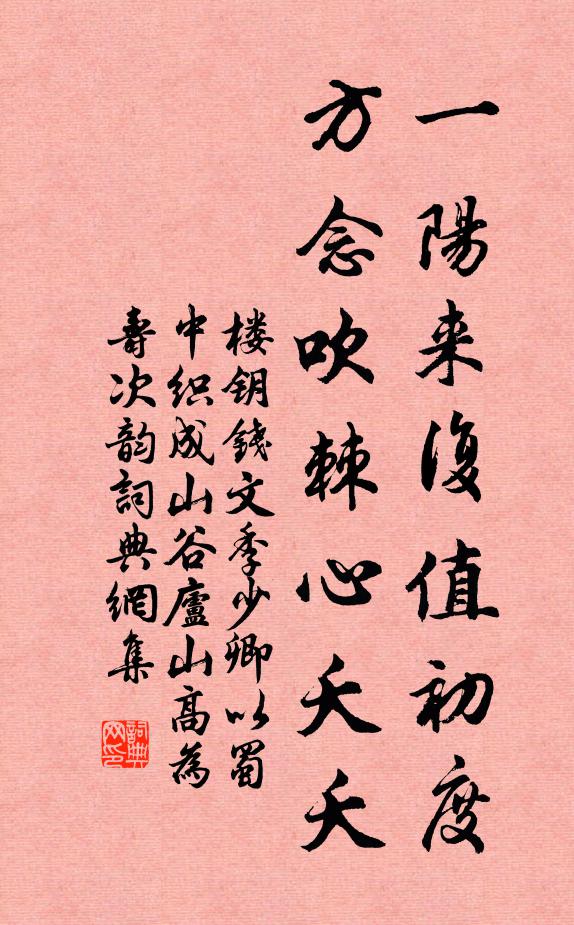 一陽来復值初度
方念吹棘心夭夭
楼钥錢文季少卿以蜀
中织成山谷廬山高為
壽次韵詞典網集
詞典
网印